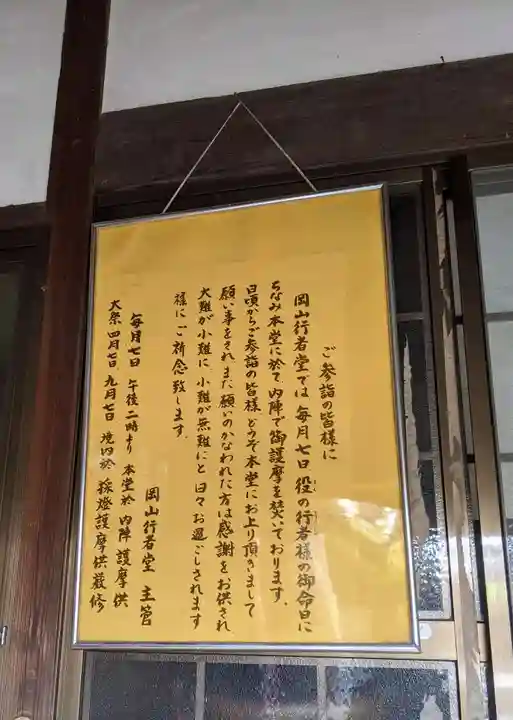 ご参詣の皆様に
岡山行者堂では毎月七日役の行者様の御命日に
ちなみ本堂に於て内陣で御護摩を焚いております。
日頃からご参詣の皆様どうぞ本堂にお上り頂きまして
願い事をされまた願いのかなわれた方は感謝をお供され
大難が小難に、小難が無難にと日々お過ごしされます
様にご祈念致します。
岡山行者堂 主管
毎月七日 午後二時より 本堂於 内陣護摩供
大祭四月七日、九月七日 境内於 採燈護摩供厳修